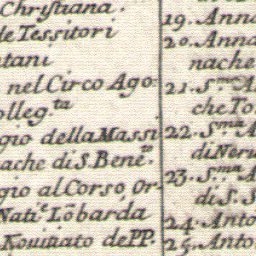 Christiana.
de Tessitori
tani
nel Circo Ago-
olleg.ta
gio della Massi
ache di S. Bene.
gio al Corso, Or-
Nati.e Lōbarda
Nouitiato de PP.
19. Anna
20. Anna
nache
21. S.ma A
che To
22. S.ma A
di Neru
23. S.ma A
di S. S
24. Anto
25. Anto